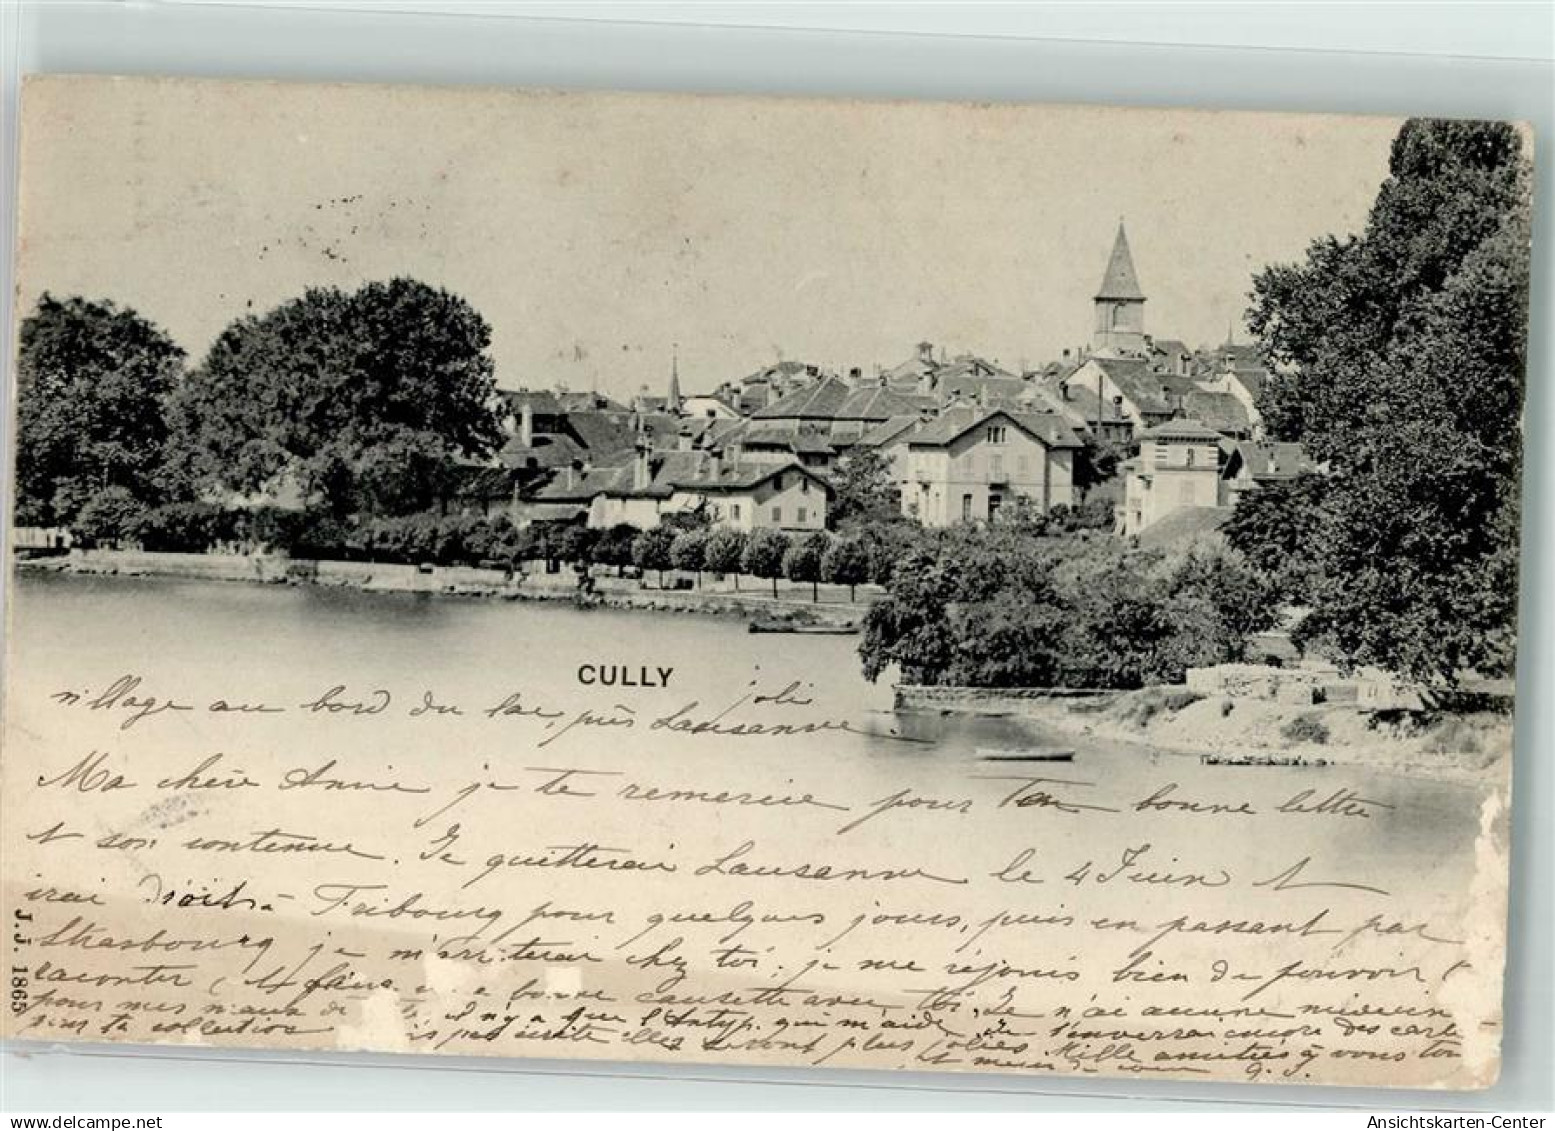 CULLY
jolie
village au bord du lac, près Lausanne.
Ma chère Annie je te remercie pour Ton bonne lettre
et son contenue. Je quitterai Lausanne le 4 Juin et
irai droit à Fribourg pour quelques jours, puis en passant par
Strasbourg je m'arriterai chez toi. je me réjouis bien de pouvoir t
raconter et faire bonne causette avec toi, Je n'ai aucune médecin
pour mes maux de il n'y a que l'Antyp. qui m'aide Je t'enverrai encore des carte
pour ta collection pas écrite elles seront plus jolies Mille amitiés à vous tou
et G. J.
J.J. 1865
Ansichtskarten-Center